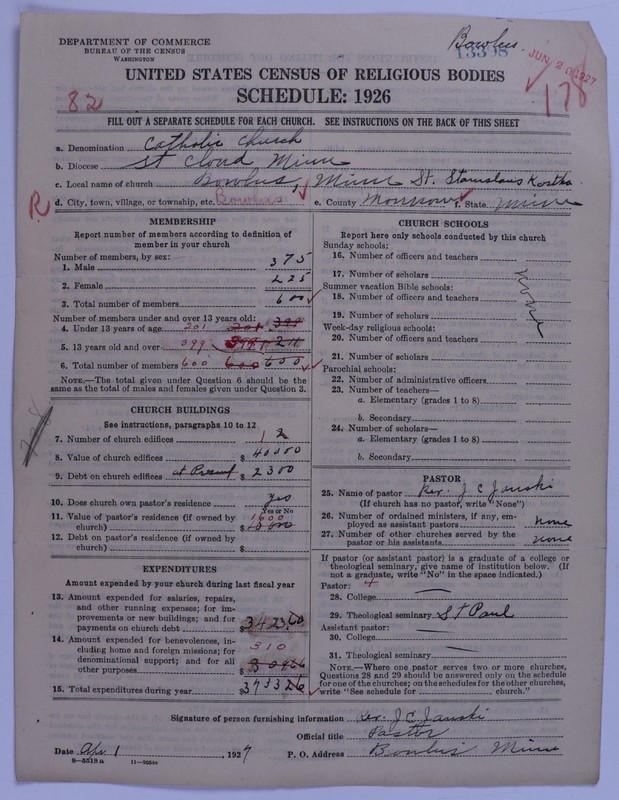 DEPARTMENT OF COMMERCE
BUREAU OF THE CENSUS
WASHINGTON
Bowlus.
13398
JUN 20 1927
178
UNITED STATES CENSUS OF RELIGIOUS BODIES
SCHEDULE: 1926
82
FILL OUT A SEPARATE SCHEDULE FOR EACH CHURCH. SEE INSTRUCTIONS ON THE BACK OF THIS SHEET
a. Denomination Catholic Church
b. Diocese St Cloud Minn
c. Local name of church Bowlus, Minn St. Stanislaus Kostka
R
d. City, town, village, or township, etc. Bowlus e. County Morrison f. State Minn
MEMBERSHIP
Report number of members according to definition of
member in your church
Number of members, by sex:
1. Male 375
2. Female 225
3. Total number of members 600
Number of members under and over 13 years old:
4. Under 13 years of age 201
5. 13 years old and over 399
6. Total number of members 600 600 600
NOTE.—The total given under Question 6 should be the
same as the total of males and females given under Question 3.
CHURCH BUILDINGS
See instructions, paragraphs 10 to 12
7. Number of church edifices 1 2
8. Value of church edifices $ 40000
9. Debt on church edifices at Present $ 2300
10. Does church own pastor's residence yes
Yes or No
11. Value of pastor's residence (if owned by
church) $ 10000
12. Debt on pastor's residence (if owned by
church) $
EXPENDITURES
Amount expended by your church during last fiscal year
13. Amount expended for salaries, repairs,
and other running expenses; for im-
provements or new buildings; and for
payments on church debt $ 3423.60
14. Amount expended for benevolences, in-
cluding home and foreign missions; for
denominational support; and for all
other purposes $ 310
15. Total expenditures during year $ 3733
CHURCH SCHOOLS
Report here only schools conducted by this church
Sunday schools:
16. Number of officers and teachers
17. Number of scholars
Summer vacation Bible schools:
18. Number of officers and teachers
none
19. Number of scholars
Week-day religious schools:
20. Number of officers and teachers
21. Number of scholars
Parochial schools:
22. Number of administrative officers
23. Number of teachers—
a. Elementary (grades 1 to 8)
b. Secondary
24. Number of scholars—
a. Elementary (grades 1 to 8)
b. Secondary
PASTOR
25. Name of pastor Rev. J C Janski
(If church has no pastor, write "None")
26. Number of ordained ministers, if any, em-
ployed as assistant pastors none
27. Number of other churches served by the
pastor or his assistants none
If pastor (or assistant pastor) is a graduate of a college or
theological seminary, give name of institution below. (If
not a graduate, write "No" in the space indicated.)
Pastor:
28. College
29. Theological seminary St Paul
Assistant pastor:
30. College
31. Theological seminary
NOTE.—Where one pastor serves two or more churches,
Questions 28 and 29 should be answered only on the schedule
for one of the churches; on the schedules for the other churches,
write "See schedule for church."
Signature of person furnishing information Rev. J. C. Janski
Official title Pastor
Date Apr 1, 1927 P. O. Address Bowlus Minn
8—5518 a